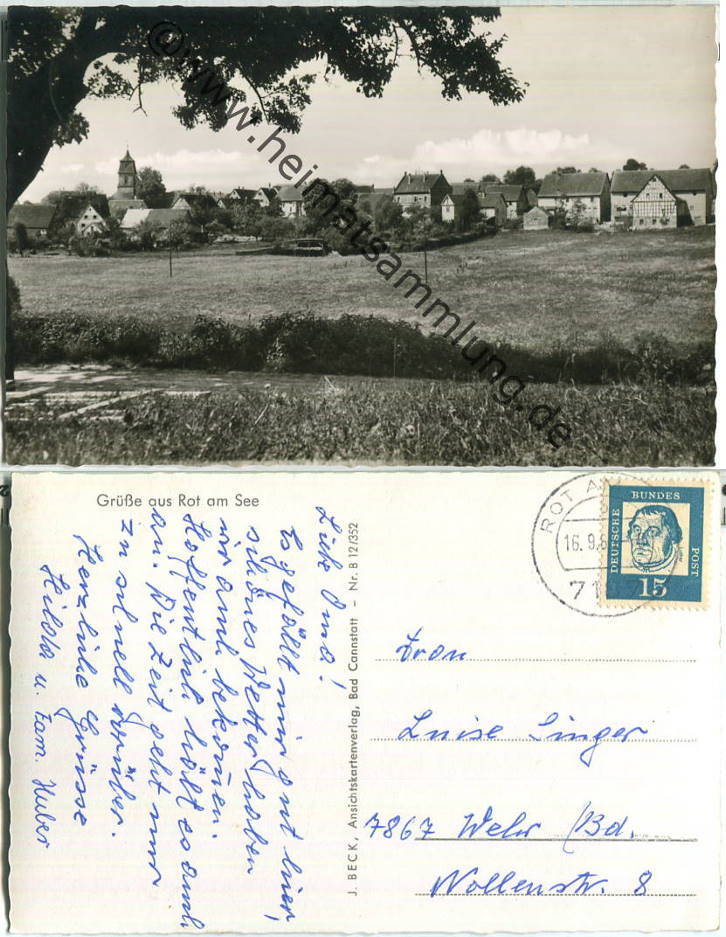 © www.heimatsammlung.de
Grüße aus Rot am See
Liebe Oma!
Es gefällt mir gut hier,
schönes Wetter haben
wir auch bekommen.
Hoffentlich hält es auch
an. Die Zeit geht nur
zu schnell vorüber.
Herzliche Grüsse
Hilda u. Fam. Huber
J. BECK, Ansichtskartenverlag, Bad Cannstatt - Nr. B 12/352
ROT A
16. 9. 6
71
DEUTSCHE
BUNDES
POST
15
Frau
Luise Singer
7867 Wehr (Bd.
Nollenstr. 8